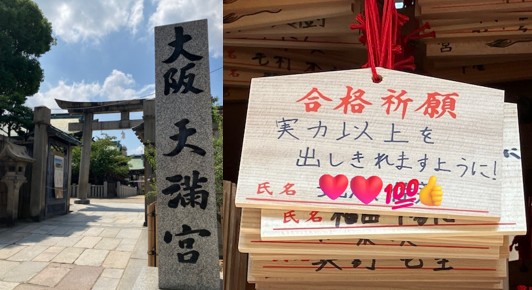 大阪天満宮
合格祈願
実力以上を
出しきれますように!
氏名
氏名